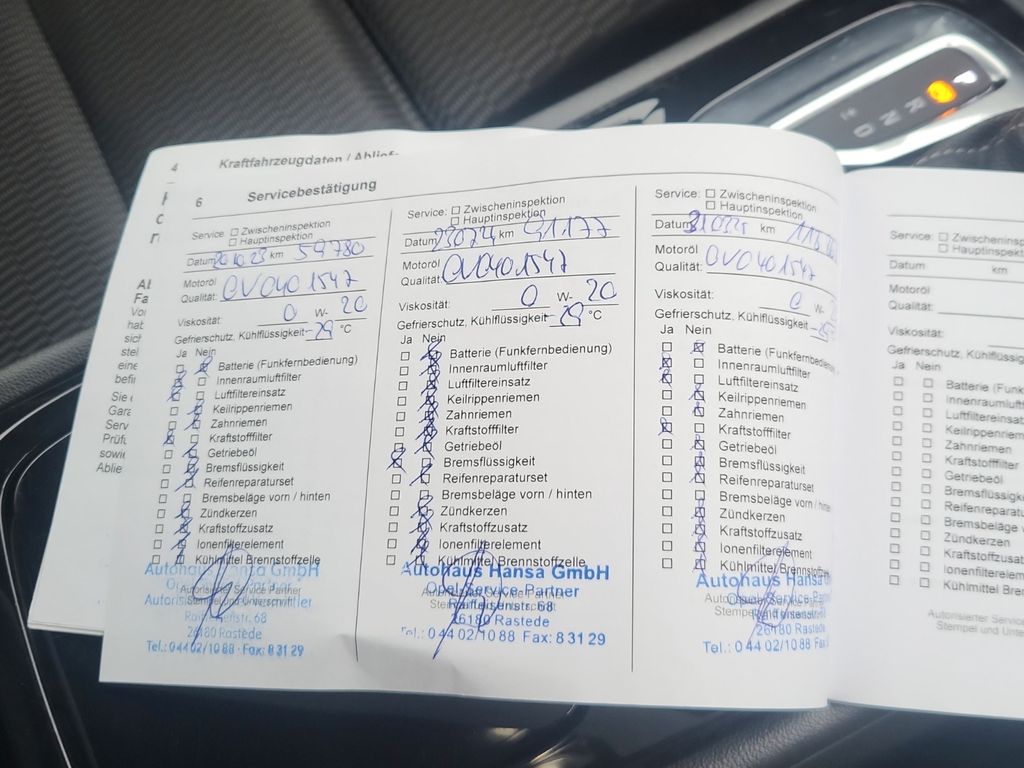 4 Kraftfahrzeugdaten / Ablief-
6 Servicebestätigung
Service: Zwischeninspektion
Hauptinspektion
Datum km 59780
Motoröl
Qualität: OV0401547
Viskosität: 0 W- 20
Gefrierschutz, Kühlflüssigkeit -29 °C
Ja Nein
Batterie (Funkfernbedienung)
Innenraumluftfilter
Luftfiltereinsatz
Keilrippenriemen
Zahnriemen
Kraftstofffilter
Getriebeöl
Bremsflüssigkeit
Reifenreparaturset
Bremsbeläge vorn / hinten
Zündkerzen
Kraftstoffzusatz
Ionenfilterelement
Kühlmittel Brennstoffzelle
Autohaus Hansa GmbH
Autorisierter Service Partner
Stempel und Unterschrift
26180 Rastede
Tel.: 04402/1088 · Fax: 83129
Service: Zwischeninspektion
Hauptinspektion
Datum km 91177
Motoröl
Qualität: OV0401547
Viskosität: 0 W- 20
Gefrierschutz, Kühlflüssigkeit -29 °C
Ja Nein
Batterie (Funkfernbedienung)
Innenraumluftfilter
Luftfiltereinsatz
Keilrippenriemen
Zahnriemen
Kraftstofffilter
Getriebeöl
Bremsflüssigkeit
Reifenreparaturset
Bremsbeläge vorn / hinten
Zündkerzen
Kraftstoffzusatz
Ionenfilterelement
Kühlmittel Brennstoffzelle
Autohaus Hansa GmbH
Opel Service-Partner
Raiffeisenstr. 68
26180 Rastede
Tel.: 04402/1088 Fax: 83129
Service: Zwischeninspektion
Hauptinspektion
Datum km
Motoröl
Qualität: OV0401547
Viskosität: 0 W-
Gefrierschutz, Kühlflüssigkeit
Ja Nein
Batterie (Funkfernbedien
Innenraumluftfilter
Luftfiltereinsatz
Keilrippenriemen
Zahnriemen
Kraftstofffilter
Getriebeöl
Bremsflüssigkeit
Reifenreparaturset
Bremsbeläge vorn / hinten
Zündkerzen
Kraftstoffzusatz
Ionenfilterelement
Kühlmittel Brennstoffzelle
Autohaus Hansa
26180 Rastede
Tel.: 04402/1088 Fa
Service: Zwischeninsp
Hauptinspekti
Datum km
Motoröl
Qualität:
Viskosität:
Gefrierschutz, Kühlflüssig
Ja Nein
Batterie (Funkfern
Innenraumluft
Luftfiltereinsat
Keilrippenriem
Zahnriemen
Kraftstofffilter
Getriebeöl
Bremsflüssigk
Reifenreparatu
Bremsbeläge vorn
Zündkerzen
Kraftstoffzusat
Ionenfilterelem
Kühlmittel Bren
Autorisierter Servic
Stempel und Unte
P R N D